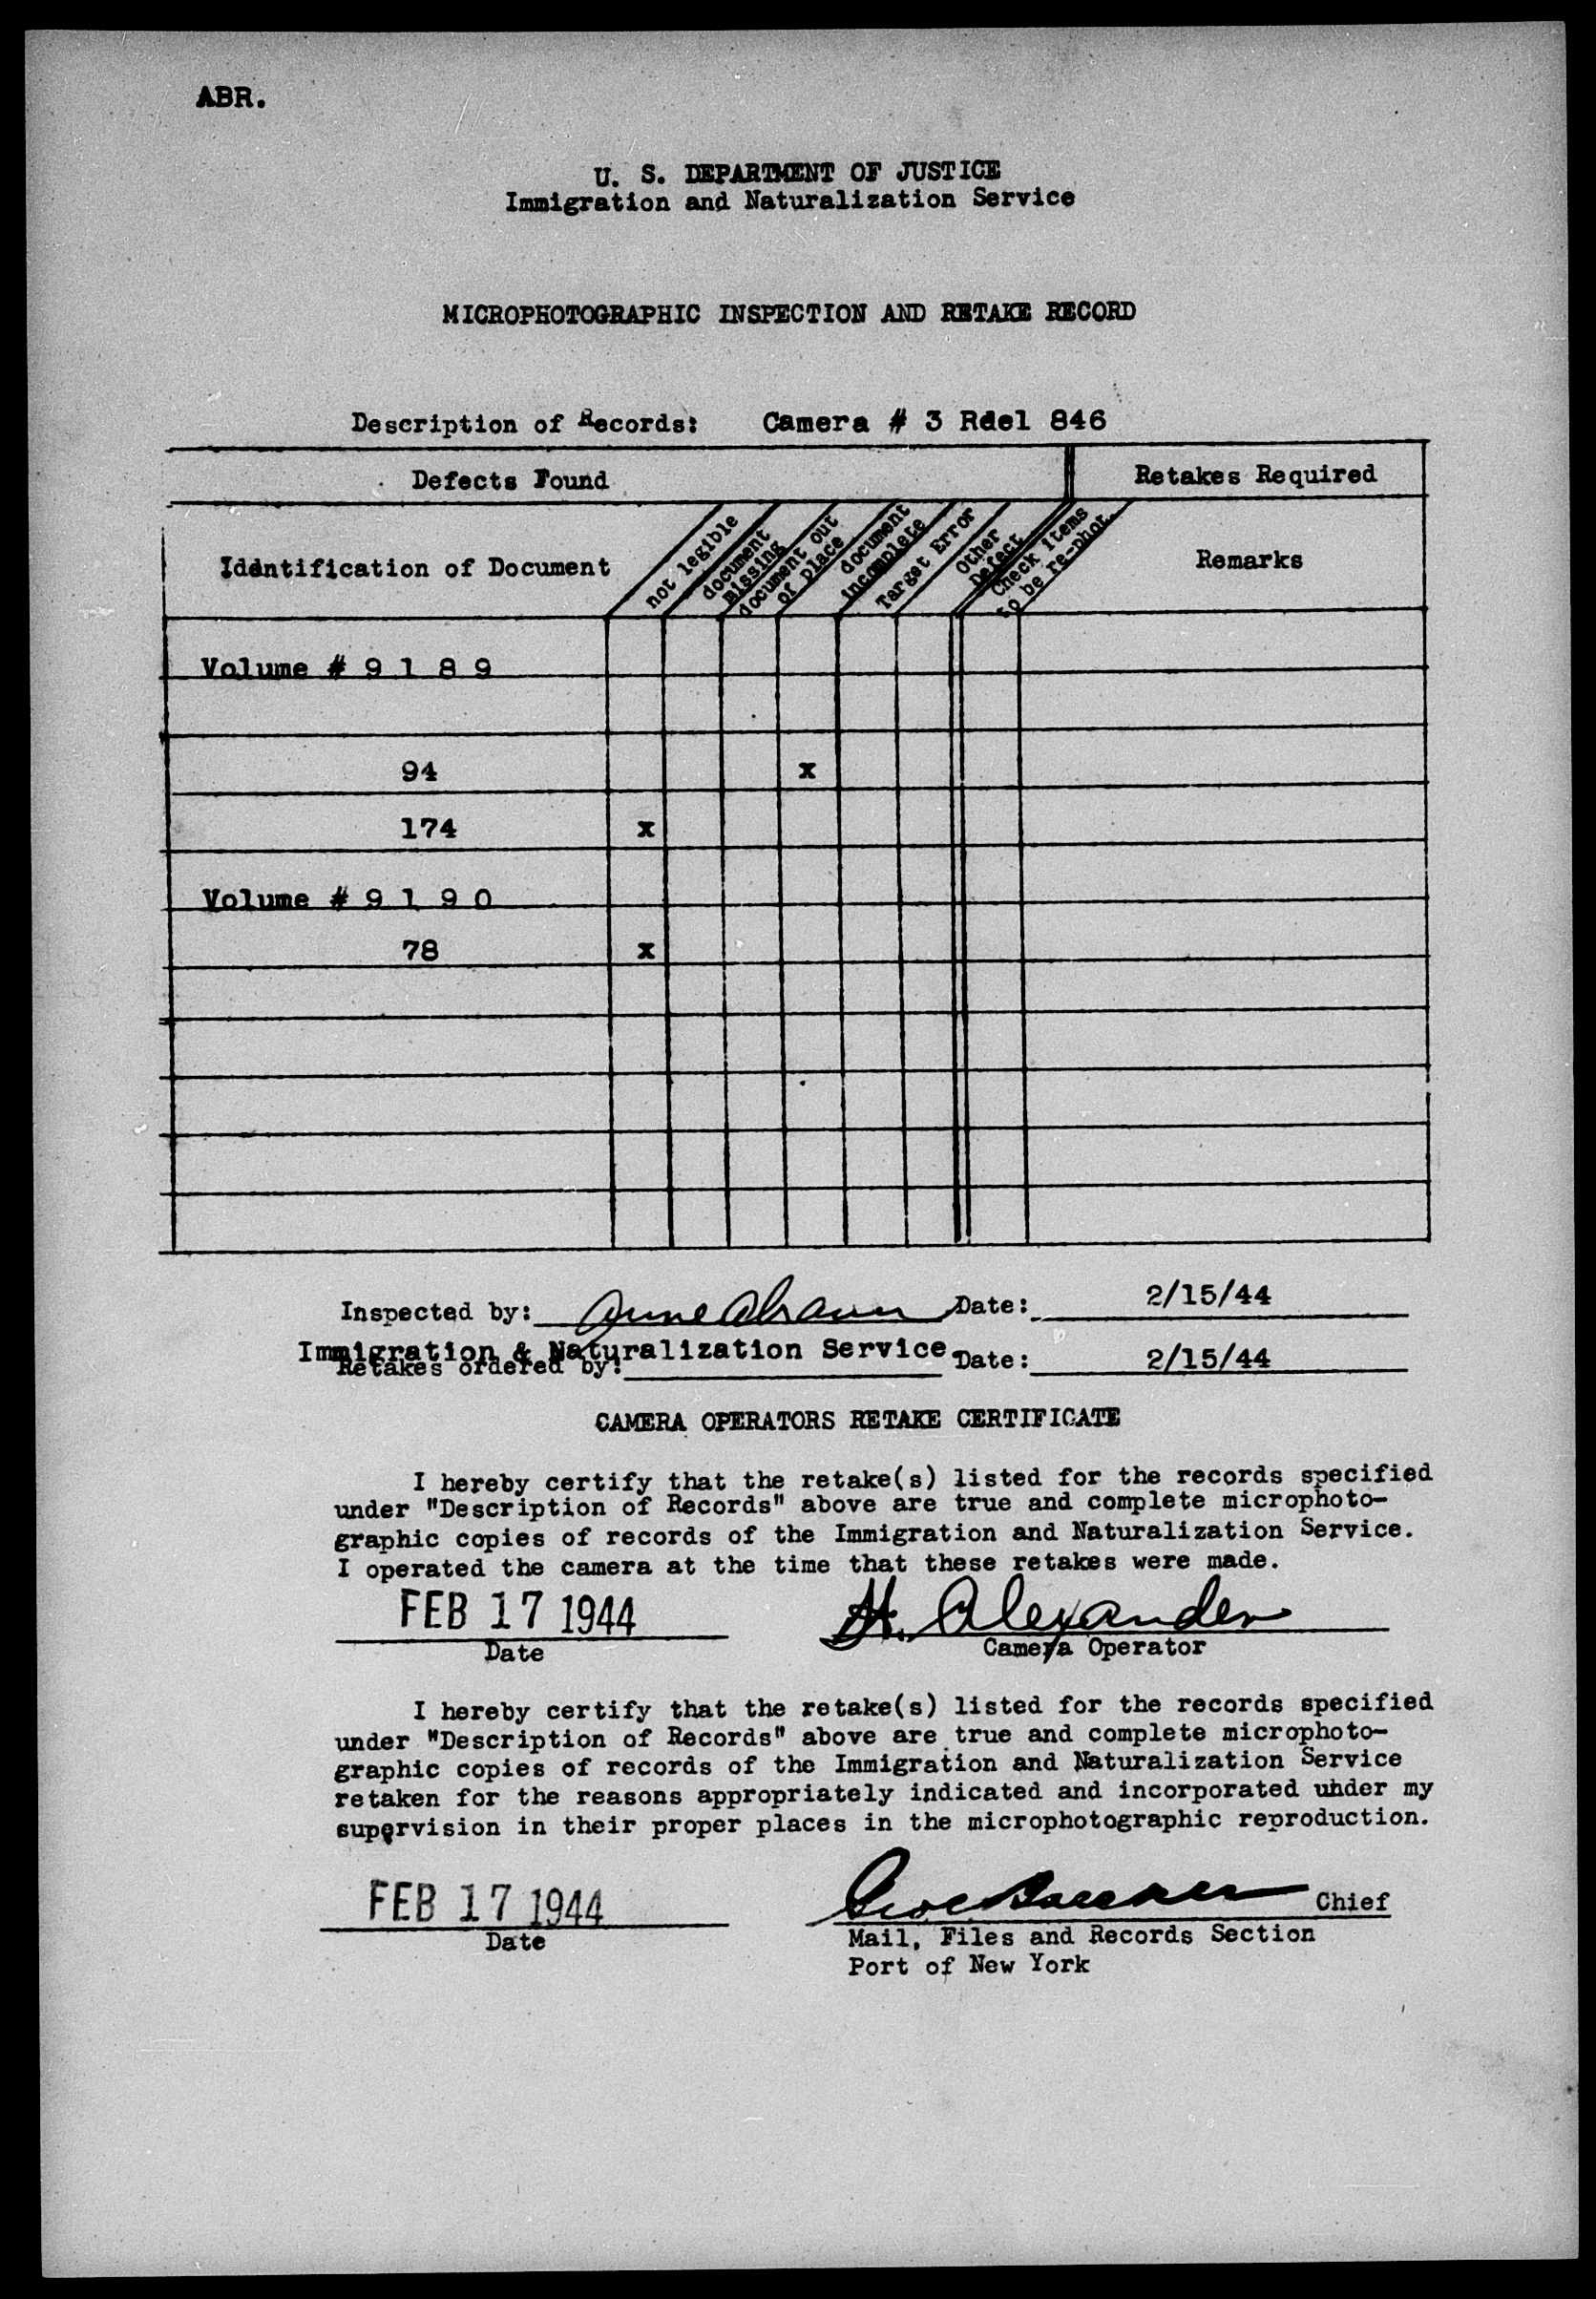 ABR.
U. S. DEPARTMENT OF JUSTICE
Immigration and Naturalization Service
MICROPHOTOGRAPHIC INSPECTION AND RETAKE RECORD
Description of Records: Camera # 3 Rdel 846
Defects Found
Retakes Required
Identification of Document
not legible
document missing
document out of place
document incomplete
Target Error
Other Defect
Check items to be re-phot.
Remarks
Volume # 9 1 8 9
94 x
174 x
Volume # 9 1 9 0
78 x
Inspected by: Anne Date: 2/15/44
Immigration & Naturalization Service
Retakes ordered by: Date: 2/15/44
CAMERA OPERATORS RETAKE CERTIFICATE
I hereby certify that the retake(s) listed for the records specified
under "Description of Records" above are true and complete microphoto-
graphic copies of records of the Immigration and Naturalization Service.
I operated the camera at the time that these retakes were made.
FEB 17 1944 H. Alexander
Date Camera Operator
I hereby certify that the retake(s) listed for the records specified
under "Description of Records" above are true and complete microphoto-
graphic copies of records of the Immigration and Naturalization Service
retaken for the reasons appropriately indicated and incorporated under my
supervision in their proper places in the microphotographic reproduction.
FEB 17 1944 Chief
Date Mail, Files and Records Section
Port of New York